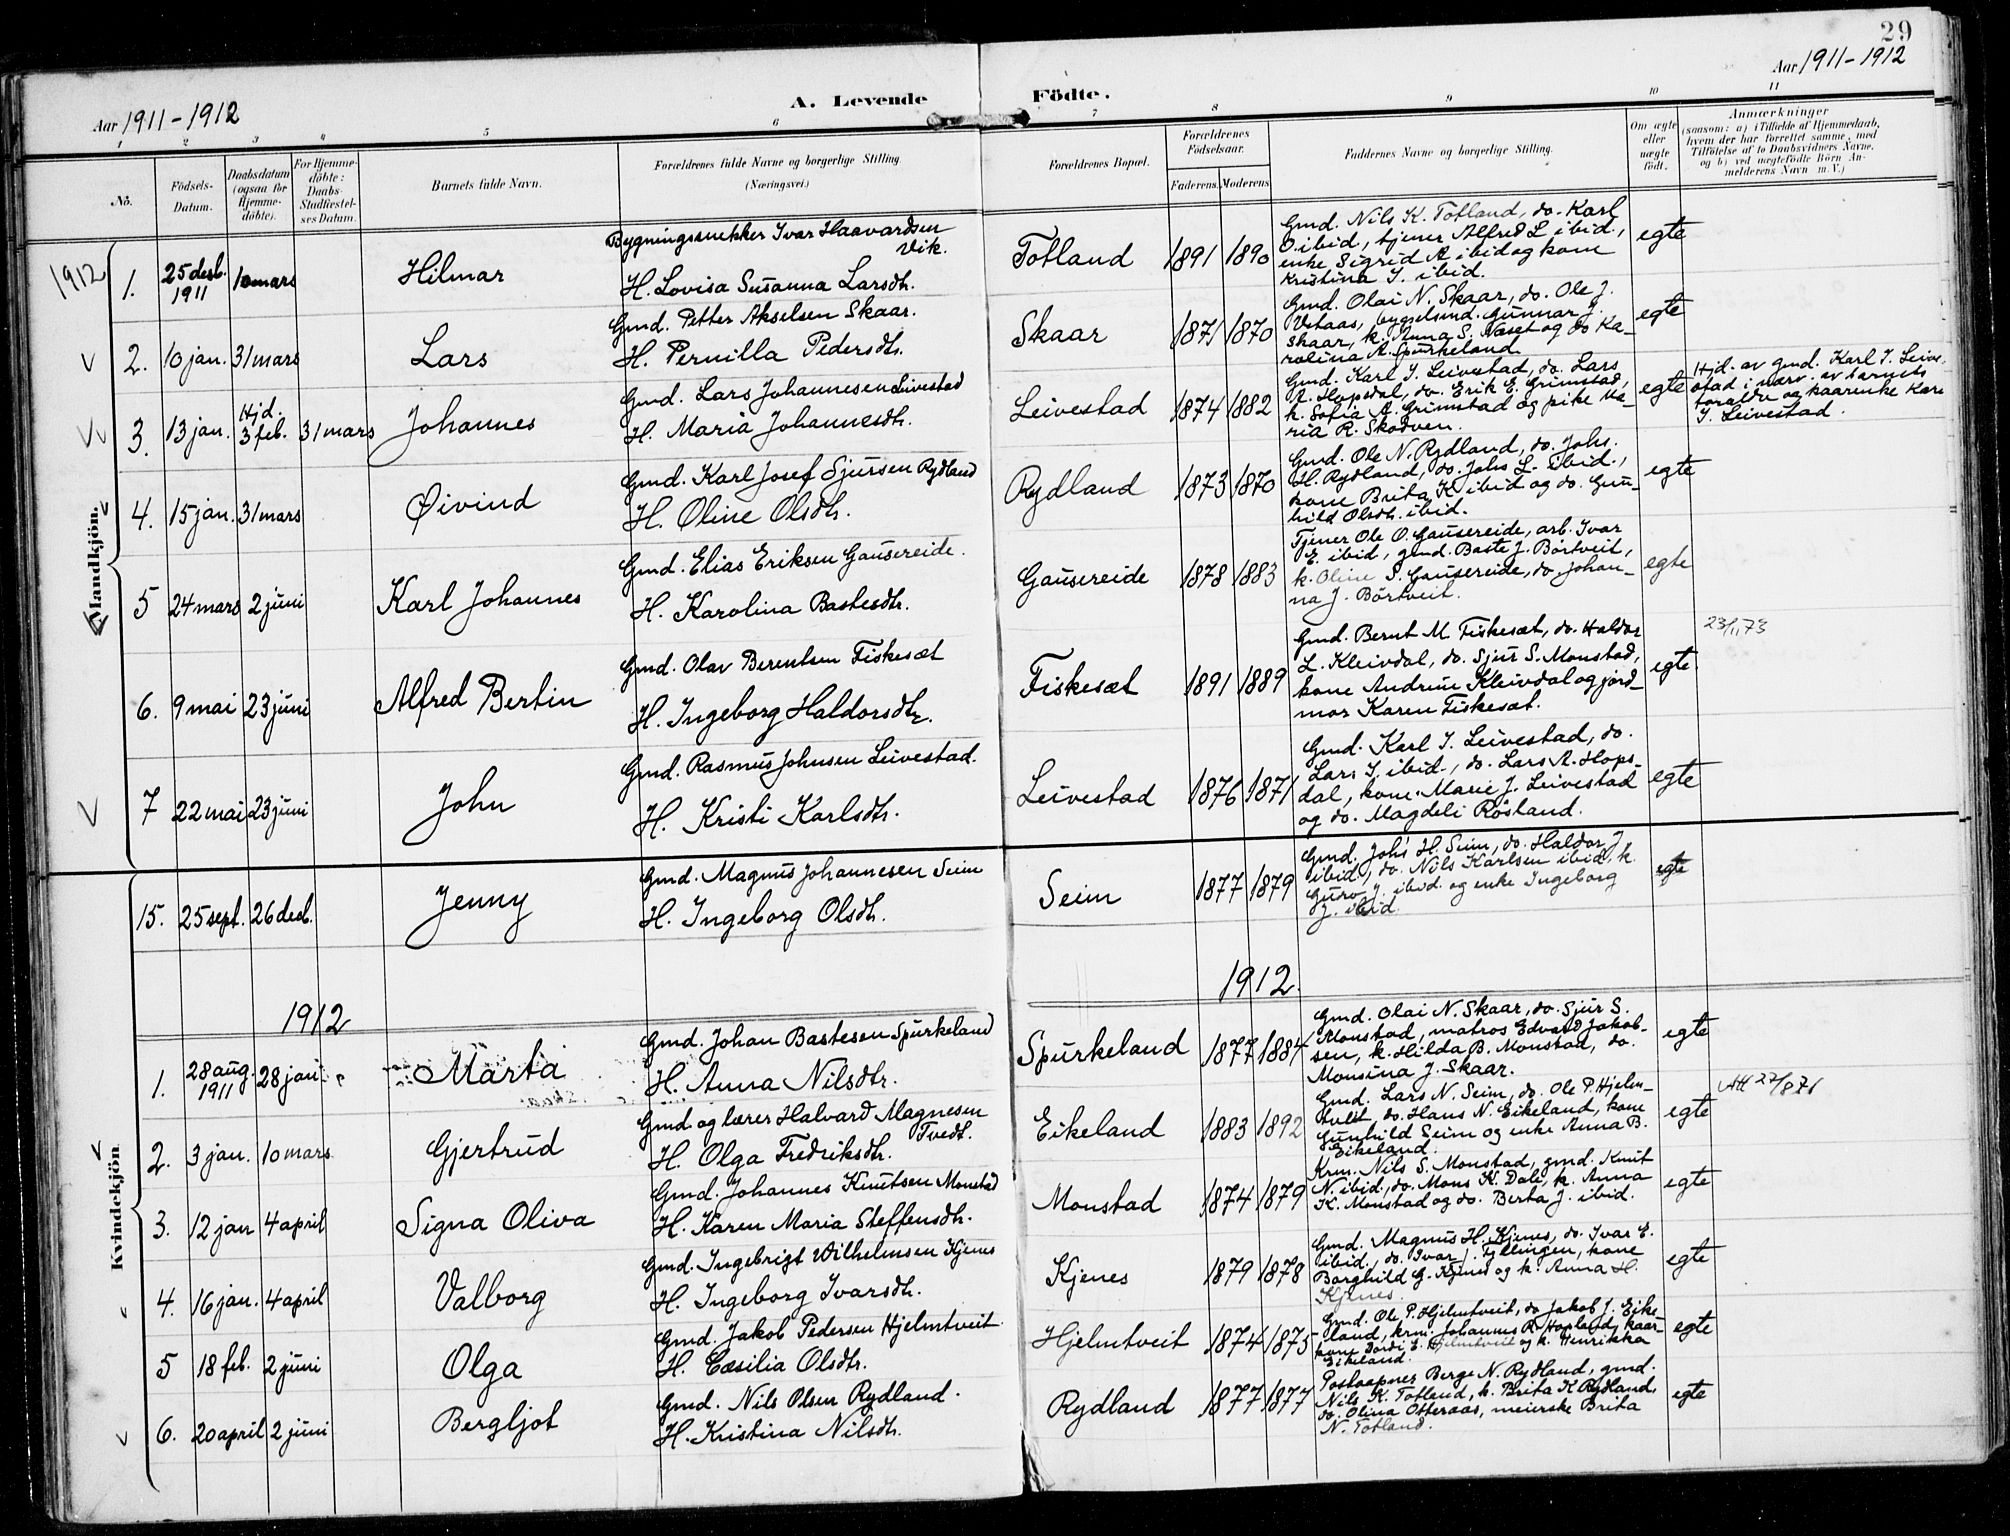 29
Aar 1911-1912
A. Levende Födte.
Aar 1911-1912
1 2 3 4 5 6 7 8 9 10 11
No.
Födsels-Datum.
Daabsdatum (ogsaa for Hjemme-döbte).
For Hjemme-döbte: Daabs-Stadfæstel-ses Datum.
Barnets fulde Navn.
Forældrenes fulde Navne og borgerlige Stilling.
(Næringsvei.)
Forældrenes Bopæl.
Forældrenes Födselsaar.
Faderens. Moderens.
Faddernes Navne og borgerlige Stilling.
Om ægte eller uægte födt.
Anmærkninger
(saasom: a) i Tilfælde af Hjemmedaab,
hvem der har forrettet samme, med
Tilföielse af to Daabsvidners Navne,
og b) ved uegtefödte Börn An-
melderens Navn m. V.)
Mandkjön.
1912
1. 25 desb. 1911 10 mars Hilmar
Bygningssnekker Ivar Haavardsen Vik.
H. Lovisa Susanna Larsdtr.
Totland 1891 1890
Gmd. Nils K. Totland, do. Karl
O. ibid, tjener Alfred L. ibid.,
enke Sigrid A. ibid og kone
Kristina I. ibid.
egte
2. 10 jan. 31 mars Lars
Gmd. Petter Akselsen Skaar.
H. Pernilla Pedersdtr.
Skaar 1871 1870
Gmd. Olai N. Skaar, do. Ole J.
Vetaas, bygselsmd. Gunnar J.
Skaar, k. Anna S. Næset og do Ka-
rolina A. Spurkeland.
egte
3. 13 jan. Hjd. 3 feb. 31 mars Johannes
Gmd. Lars Johannesen Leivestad
H. Maria Johannesdtr.
Leivestad 1874 1882
Gmd. Karl J. Leivestad, do. Lars
A. Hopsdal, do. Erik E. Grimstad,
k. Sofia A. Grimstad og pike Ma-
ria R. Skodven.
egte
Hjd. av gmd. Karl J. Leive-
stad i nærv. av barnets
foræld. og kaarenke Kari
J. Leivestad.
4. 15 jan. 31 mars Øivind
Gmd. Karl Josef Sjursen Rydland
H. Oline Olsdtr.
Rydland 1873 1870
Gmd. Ole N. Rydland, do. Johs.
H. Rydland, do. Johs L. ibid.,
kone Brita K. ibid og do. Gun-
hild Olsdtr. ibid.
egte
5 24 mars 2 juni Karl Johannes
Gmd. Elias Eriksen Gausereide.
H. Karolina Bastesdtr.
Gausereide 1878 1883
Tjener Ole O. Gausereide, arb. Ivar
E. ibid, gmd. Baste J. Börtveit,
k. Oline S. Gausereide, do Johan-
na J. Börtveit.
egte
6. 9 mai 23 juni Alfred Bertin
Gmd. Olav Berentsen Fiskesæt
H. Ingeborg Haldorsdtr.
Fiskesæt 1891 1889
Gmd. Bernt M. Fiskesæt, do. Haldor
L. Kleivdal, do. Sjur S. Monstad,
kone Andrine Kleivdal og jord-
mor Karen Fiskesæt.
egte
23/11 73
7 22 mai 23 juni John
Gmd. Rasmus Johnsen Leivestad.
H. Kristi Karlsdtr.
Leivestad 1876 1871
Gmd. Karl J. Leivestad, do.
Lars J. ibid., do. Lars A. Hops-
dal, kone Marie J. Leivestad
og do. Magdeli Röstand.
egte
Kvindekjön
15. 25 sept. 26 desb. Jenny
Gmd. Magnus Johannesen Seim
H. Ingeborg Olsdtr.
Seim 1877 1879
Gmd. Johs H. Seim, do. Haldor J.
ibid, do. Nils Karlsen ibid, k.
Guro J. ibid. og enke Ingeborg
J. ibid
egte
1912
1912.
1. 28 aug. 1911 28 jan Marta
Gmd. Johan Bastesen Spurkeland
H. Anna Nilsdtr.
Spurkeland 1877 1884
Gmd. Olai N. Skaar, do. Sjur S.
Monstad, matros Edvard Jakob-
sen, k. Hilda B. Monstad, do.
Monsina J. Skaar.
egte
2. 3 jan. 10 mars Gjertrud
Gmd og lærer Halvard Magnesen Tvedt.
H. Olga Fredriksdtr.
Eikeland 1883 1892
Gmd. Lars N. Seim, do. Ole P. Hjelm-
tveit, do. Hans N. Eikeland, kone
Gunhild Seim og enke Anna B.
Eikeland.
egte
Att 27/8 71
3. 12 jan 4 april Signa Oliva
Gmd. Johannes Knutsen Monstad
H. Karen Maria Steffensdtr.
Monstad 1874 1879
Krm. Nils S. Monstad, gmd. Knut
N. ibid., do. Mons K. Dale, k. Anna
K. Monstad og do. Berta J. ibid.
egte
4. 16 jan. 4 april Valborg
Gmd. Ingebrigt Wilhelmsen Kjenes
H. Ingeborg Ivarsdtr.
Kjenes 1879 1878
Gmd. Magnus H. Kjenes, do. Ivar E.
ibid., do. Ivar J. Fyllingen, kone
Borghild G. Kjenes og k. Anna H.
Kjenes.
egte
5 18 feb. 2 juni Olga
Gmd. Jakob Pedersen Hjelmtveit
H. Cæsilia Olsdtr.
Hjelmtveit 1874 1875
Gmd. Ole P. Hjelmtveit, do Jakob J. Eike-
land, krm. Johannes R. Hopland, kaar-
kone Dordi E. Hjelmtveit og k. Henrikka
Eikeland.
egte
6. 20 april 2 juni Bergljot
Gmd. Nils Olsen Rydland.
H. Kristina Nilsdtr.
Rydland 1877 1877
Postaapner Berge N. Rydland, gmd.
Nils K. Totland, k. Brita K Rydland,
do. Olina Otteraas, meierske Brita
N. Totland.
egte